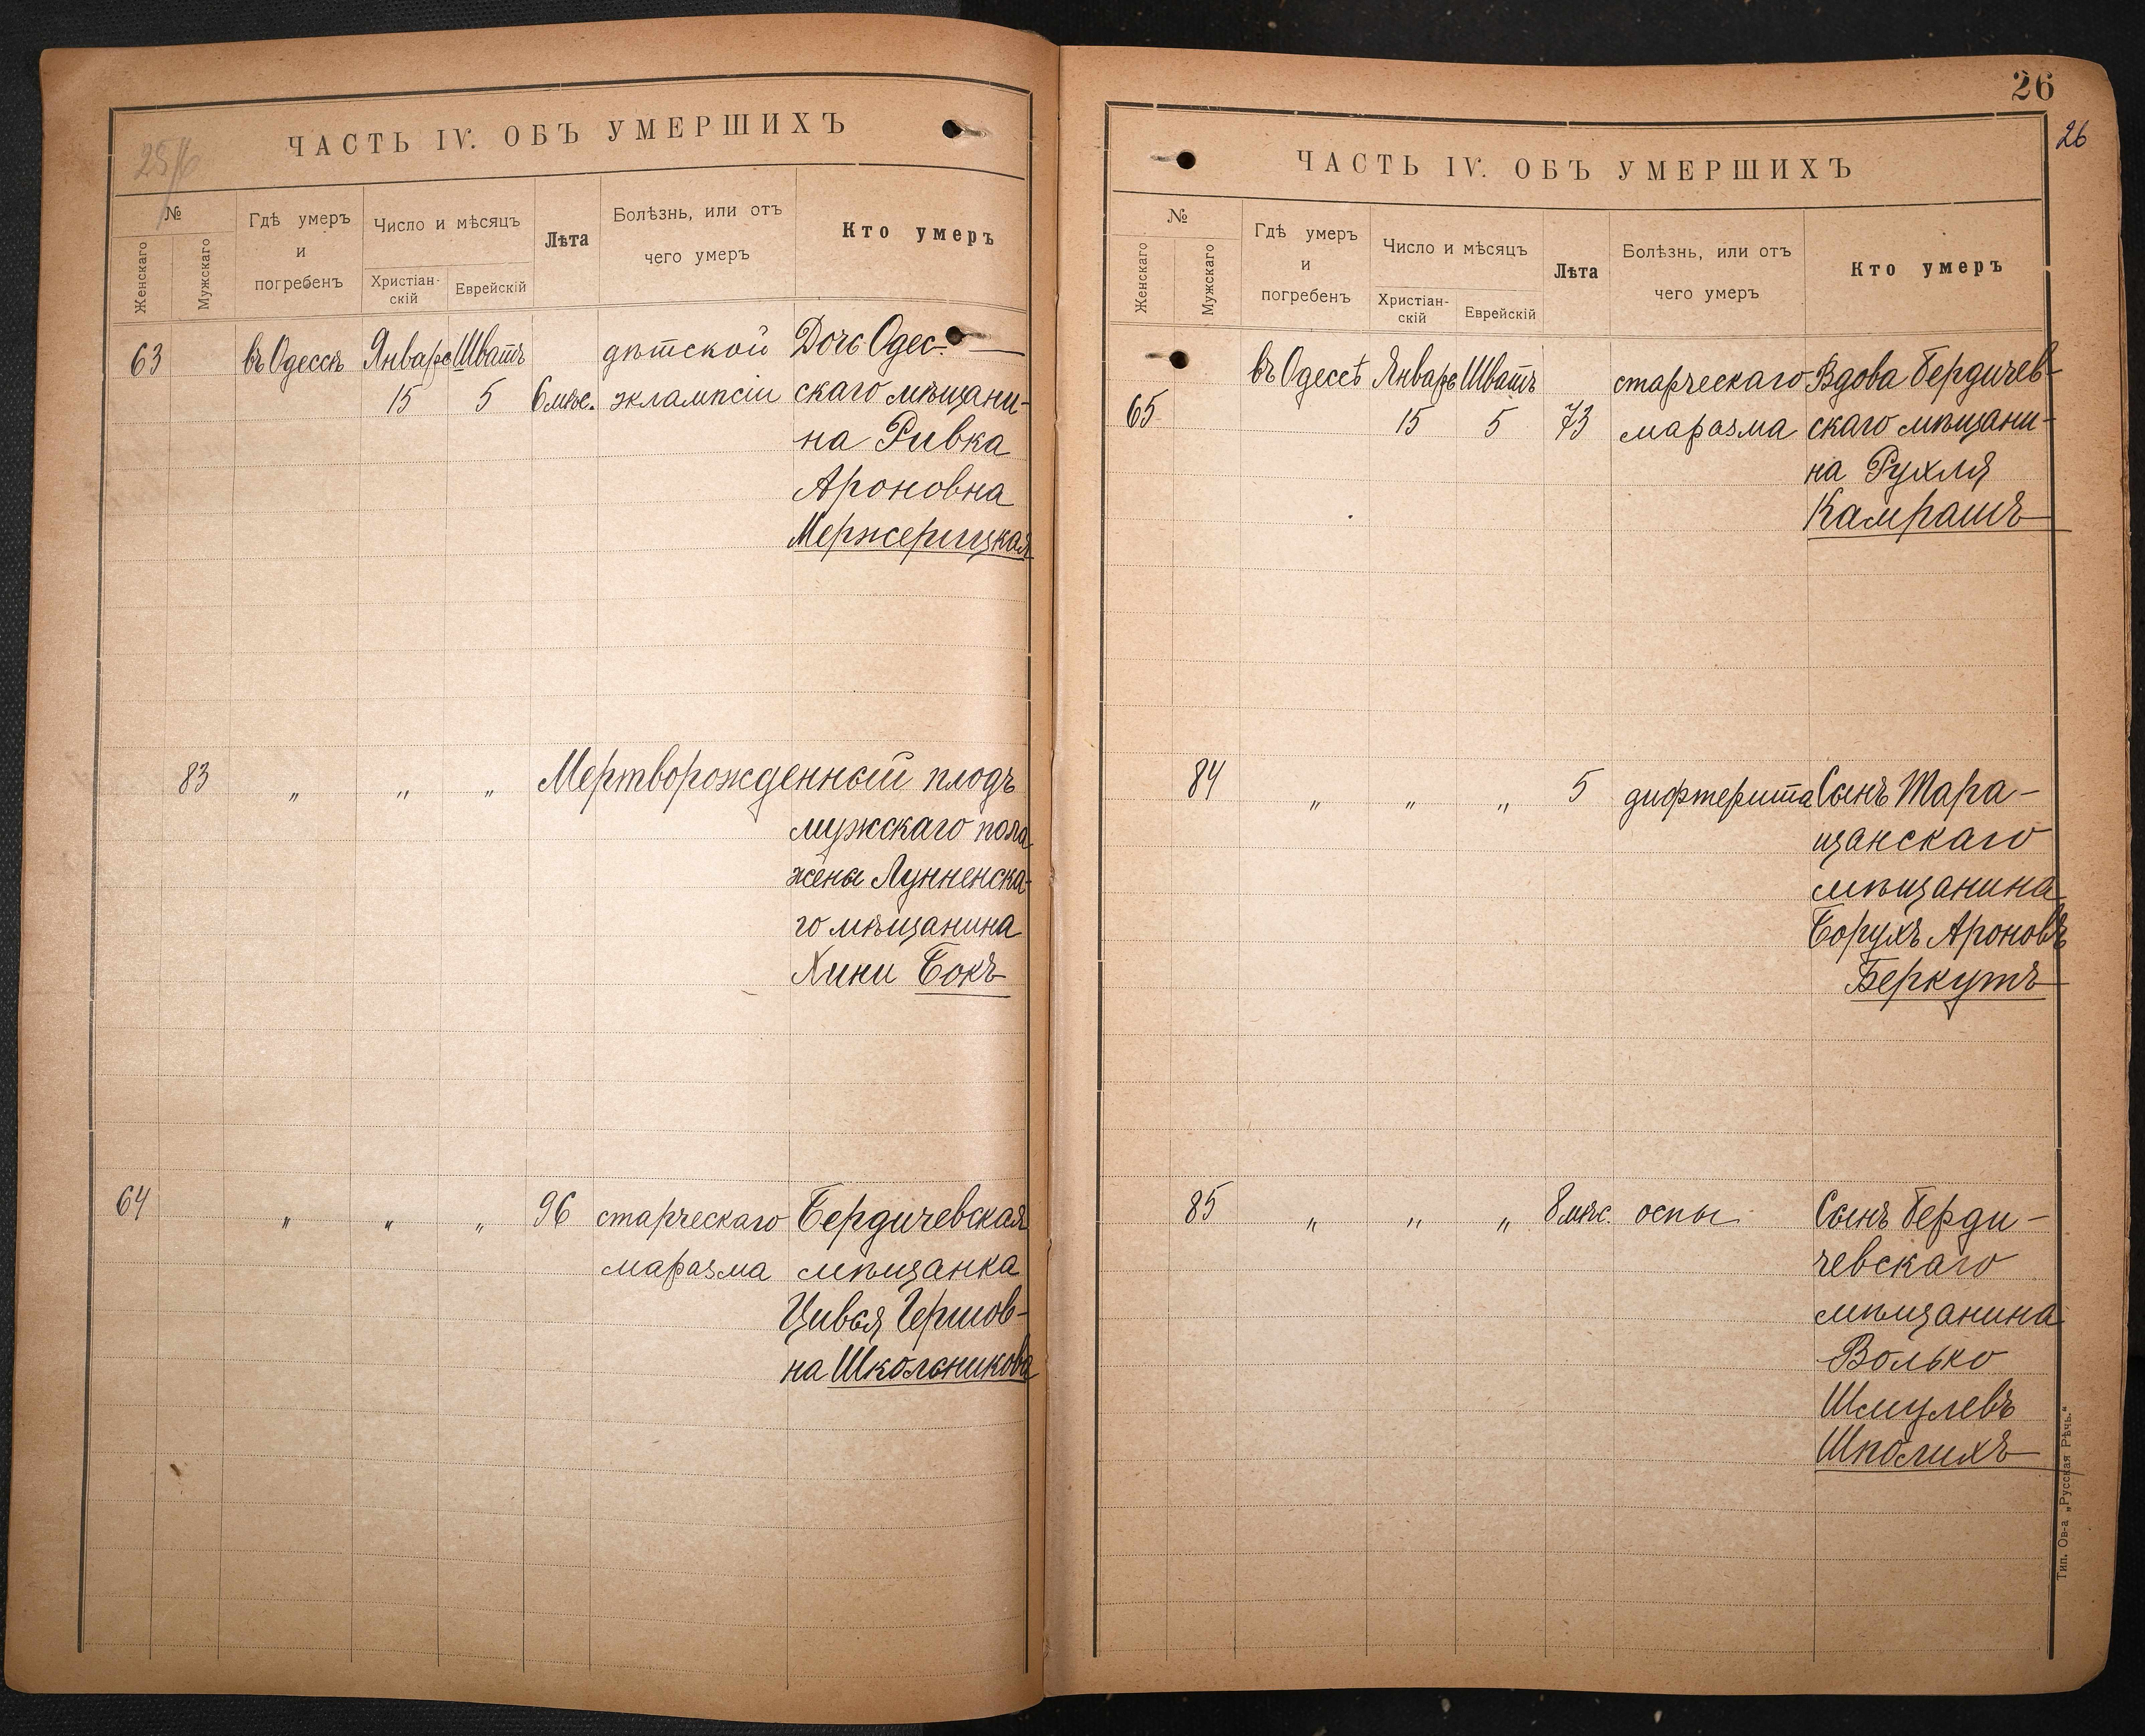 25/6
ЧАСТЬ IV. ОБЪ УМЕРШИХЪ
№
Женскаго
Мужскаго
Гдѣ умеръ
и
погребенъ
Число и мѣсяцъ
Христіан-
скій
Еврейскій
Лѣта
Болѣзнь, или отъ
чего умеръ
Кто умеръ
63 въ Одессѣ Январь Шватъ дѣтской Дочь Одес-
15 5 6 мѣс. эклампсіи скаго мѣщани-
на Ривка
Ароновна
Мержерицкая
83 „ „ „ Мертворожденный плодъ
мужскаго пола
жены Лунненска-
го мѣщанина
Хини Бокъ
64 „ „ „ 96 старческаго Бердичевская
маразма мѣщанка
Цивья Гершов-
на Школьникова
26
26
ЧАСТЬ IV. ОБЪ УМЕРШИХЪ
№
Женскаго
Мужскаго
Гдѣ умеръ
и
погребенъ
Число и мѣсяцъ
Христіан-
скій
Еврейскій
Лѣта
Болѣзнь, или отъ
чего умеръ
Кто умеръ
въ Одессѣ Январь Шватъ старческаго Вдова Бердичев-
65 15 5 73 маразма скаго мѣщани-
на Рухля
Камрашъ
84 „ „ „ 5 дифтерита Сынъ Тара-
щанскаго
мѣщанина
Борухъ Ароновъ
Беркутъ
85 „ „ „ 8 мѣс. оспы Сынъ Берди-
чевскаго
мѣщанина
Волько
Шмулевъ
Шполихъ
Тип. Ов-а „Русская Рѣчь.“